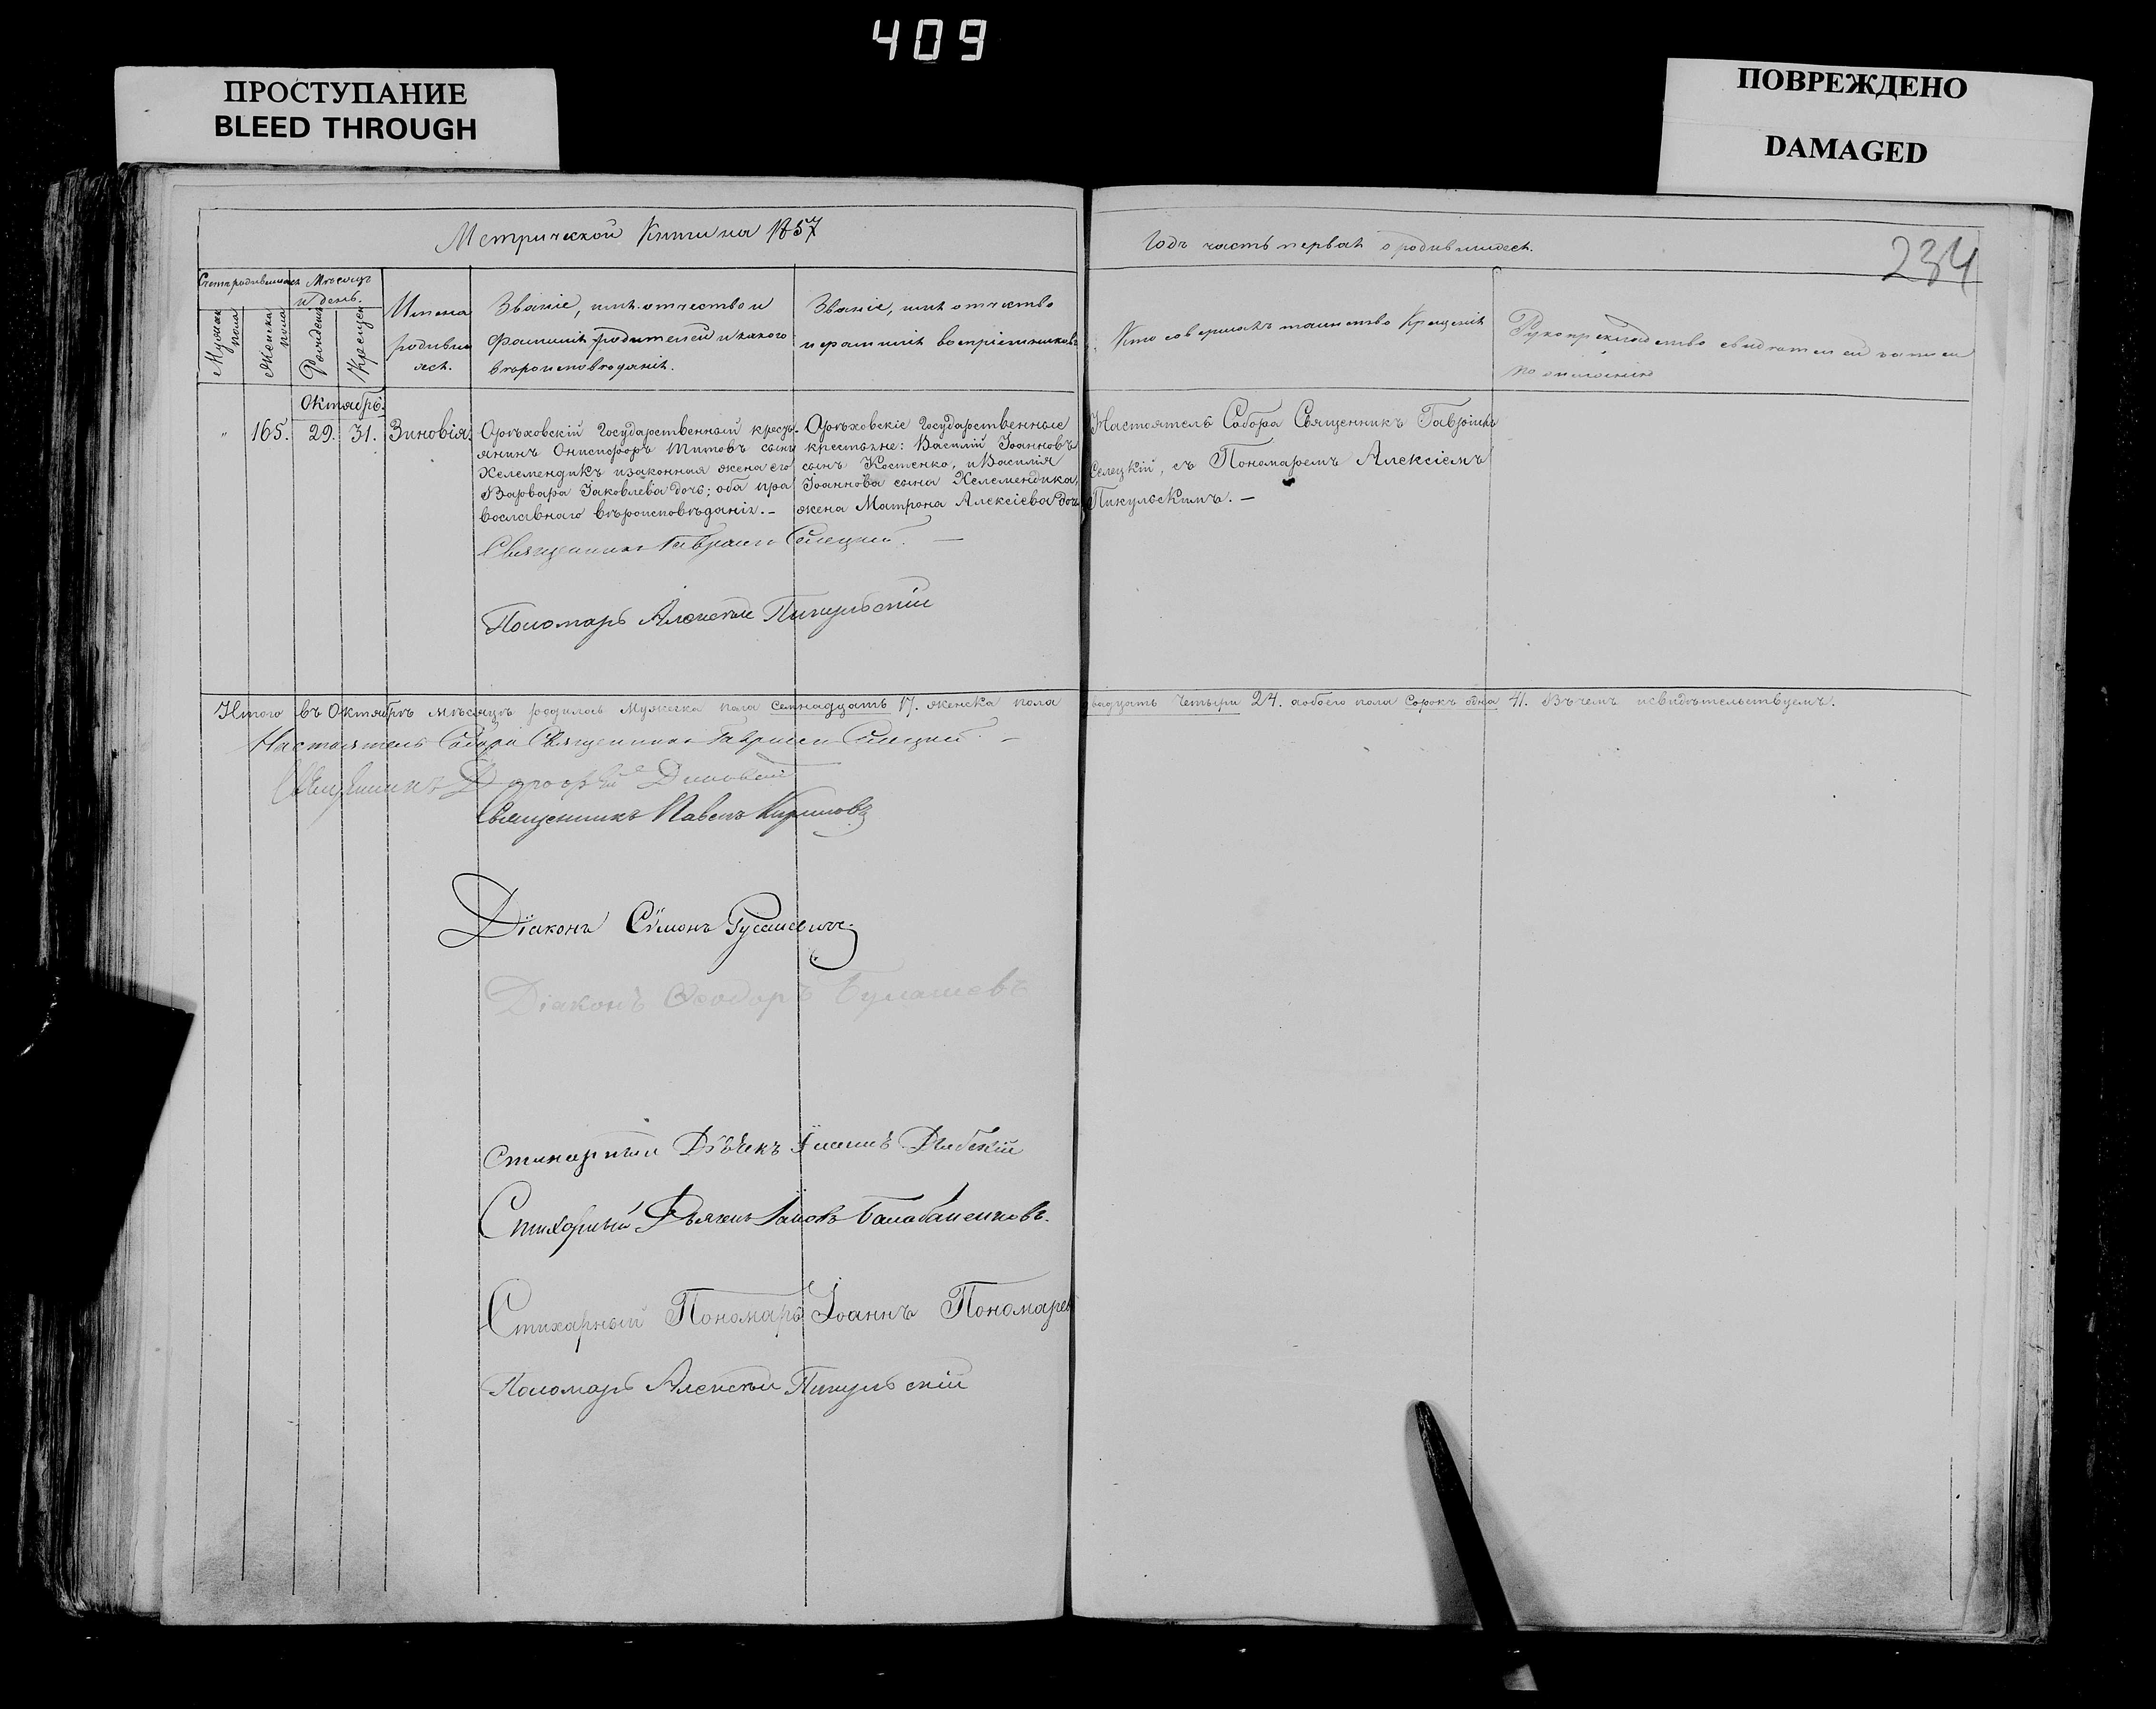 409
ПРОСТУПАНИЕ
BLEED THROUGH
ПОВРЕЖДЕНО
DAMAGED
Метрической Книги на 1857
Годъ часть первая о родившихся.
234
Счетъ родившихся
Мѣсяцъ и день.
Мужска пола
Женска пола
Рожденія
Крещенія
Имена родившихся.
Званіе, имя, отчество и
фамилія родителей и какого
вѣроисповѣданія.
Званіе, имя отчество
и фамилія воспріемниковъ
Кто совершалъ таинство Крещенія
Рукоприкладство свидѣтелей записи
по желанію
Октябрь.
" 165. 29. 31. Зиновія.
Орѣховскій Государственный кресть-
янинъ Онисифоръ Титовъ сынъ
Хелемендикъ и законная жена его
Варвара Іаковлева дочь; оба пра
вославнаго вѣроисповѣданія. –
Орѣховскіе Государственные
крестьяне: Василій Іоанновъ
сынъ Костенко, и Василія
Іоаннова сына Хелемендика,
жена Матрона Алексіева дочь
Настоятель Собора Священникъ Гавріилъ
Селецкій, съ Пономаремъ Алексіемъ
Пикульскимъ. –
Священникъ Гавріилъ Селецкій. –
Пономарь Алексѣй Пикульскій
Итого въ Октябрѣ мѣсяцѣ родилось Мужска пола семнадцать 17. женска пола двадцать четыри 24. а обоего пола сорокъ одна 41. Въ чемъ и свидѣтельствуемъ.
Настоятель Собора Священникъ Гавріилъ Селецкій. –
Священникъ
Священникъ Павелъ Кириловъ
Діаконъ Сѵмонъ
Діаконъ Ѳеодоръ Булашевъ
Стихарный Дьячекъ
Стихарный Дьячекъ Іаковъ Балабаненковъ.
Стихарный Пономарь Іоаннъ Пономарев
Пономарь Алексѣй Пикульскій